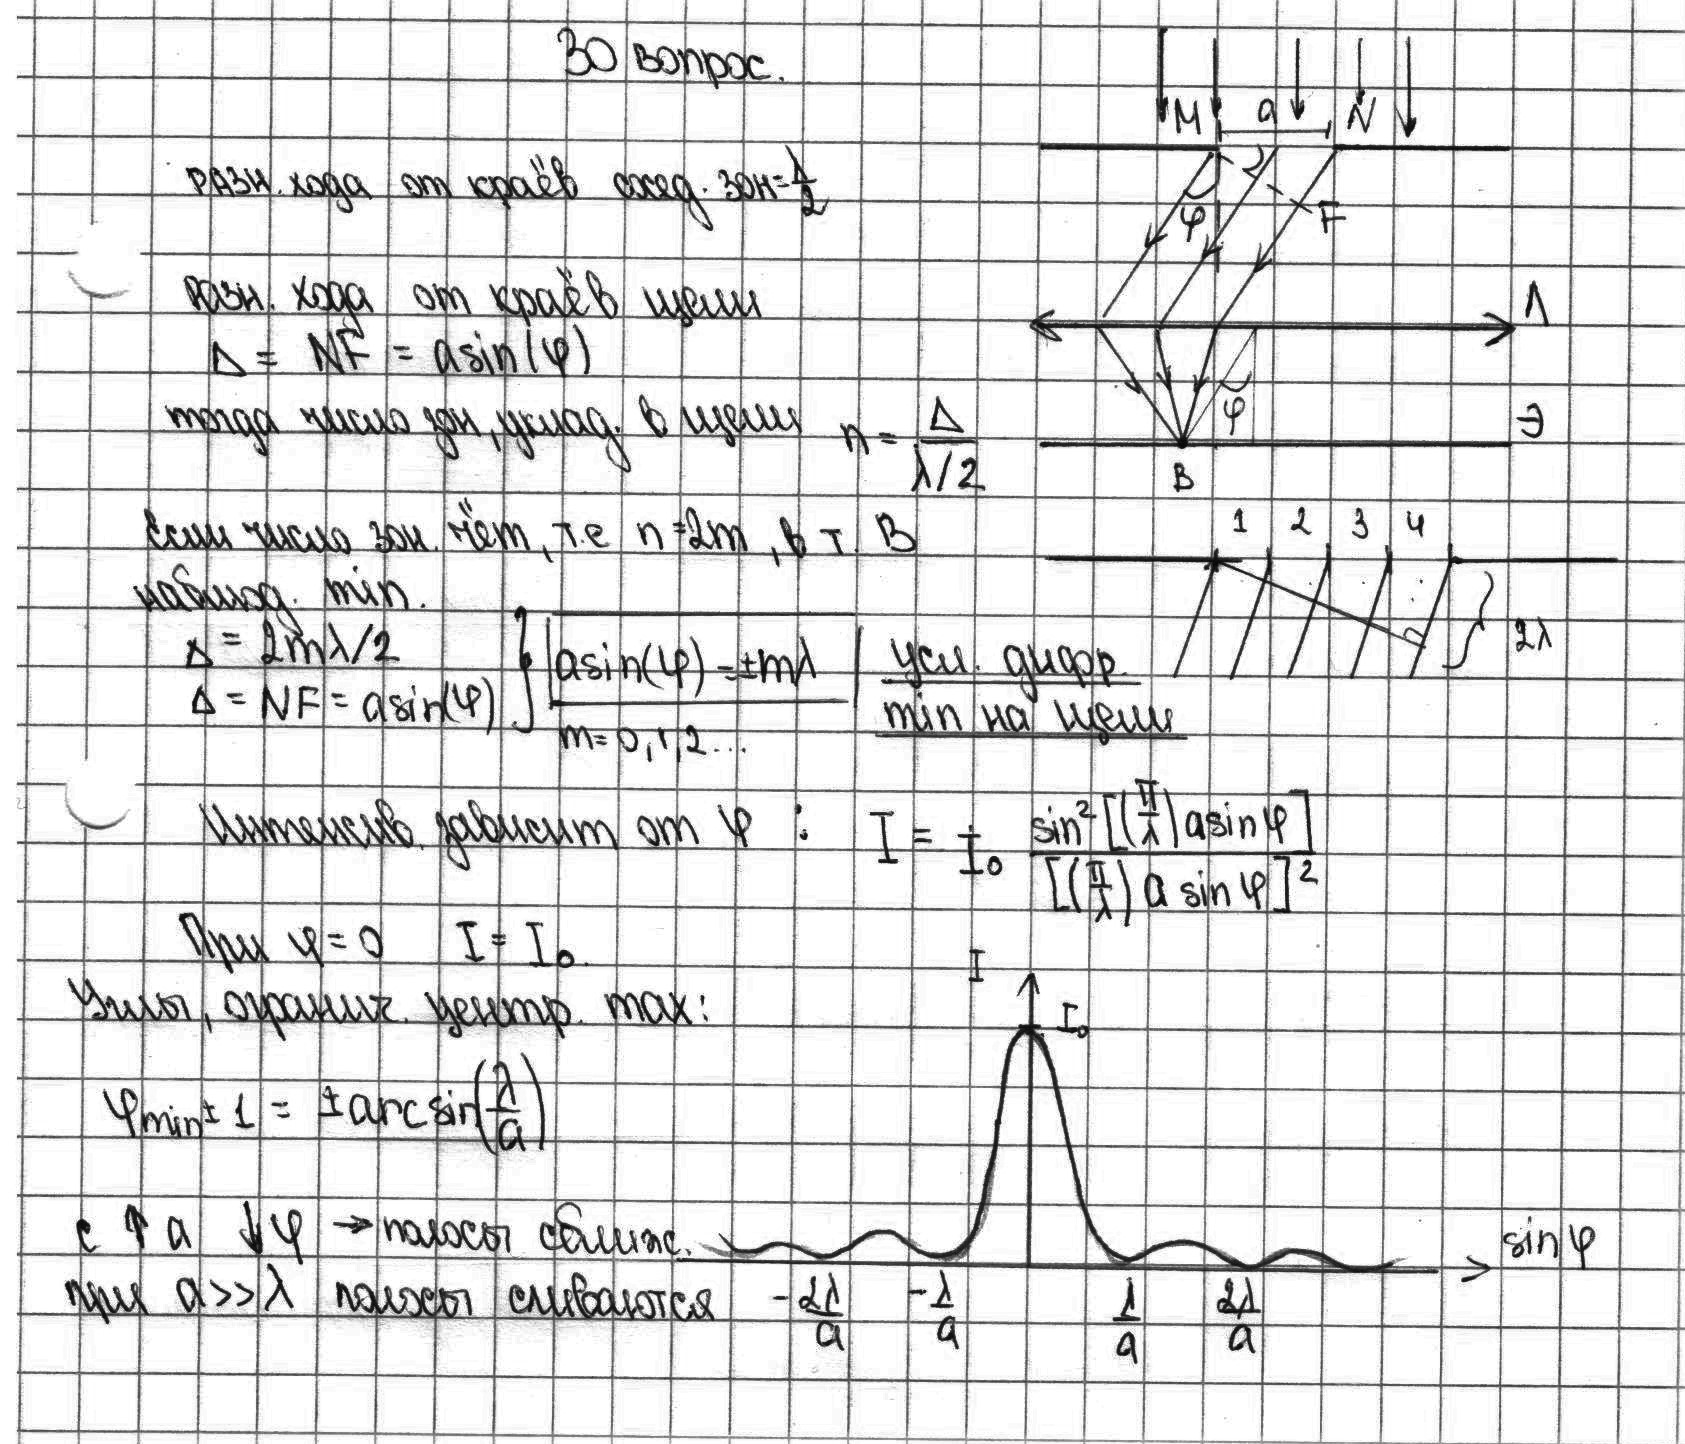 30 вопрос.
разн. хода от краёв сосед. зон = λ/2
разн. хода от краёв щели
Δ = NF = asin(φ)
тогда число зон, уклад. в щели n = Δ / (λ/2)
Если число зон. чёт, т.е n=2m, в т. B
наблюд. min.
Δ = 2mλ/2
Δ = NF = asin(φ)
asin(φ) = ±mλ
m=0,1,2...
усл. дифр.
min на щели
Интенсив. зависит от φ : I = I₀ sin²[(π/λ)asinφ] / [(π/λ) a sinφ]²
При φ=0 I = I₀.
Углы, огранич. центр. max:
φmin±1 = ±arcsin(λ/a)
с ↑a ↓φ → полосы сближ.
при a>>λ полосы сливаются
M a N
φ F
Л
φ
Э
B
1 2 3 4
2λ
I
I₀
sinφ
-2λ/a -λ/a λ/a 2λ/a